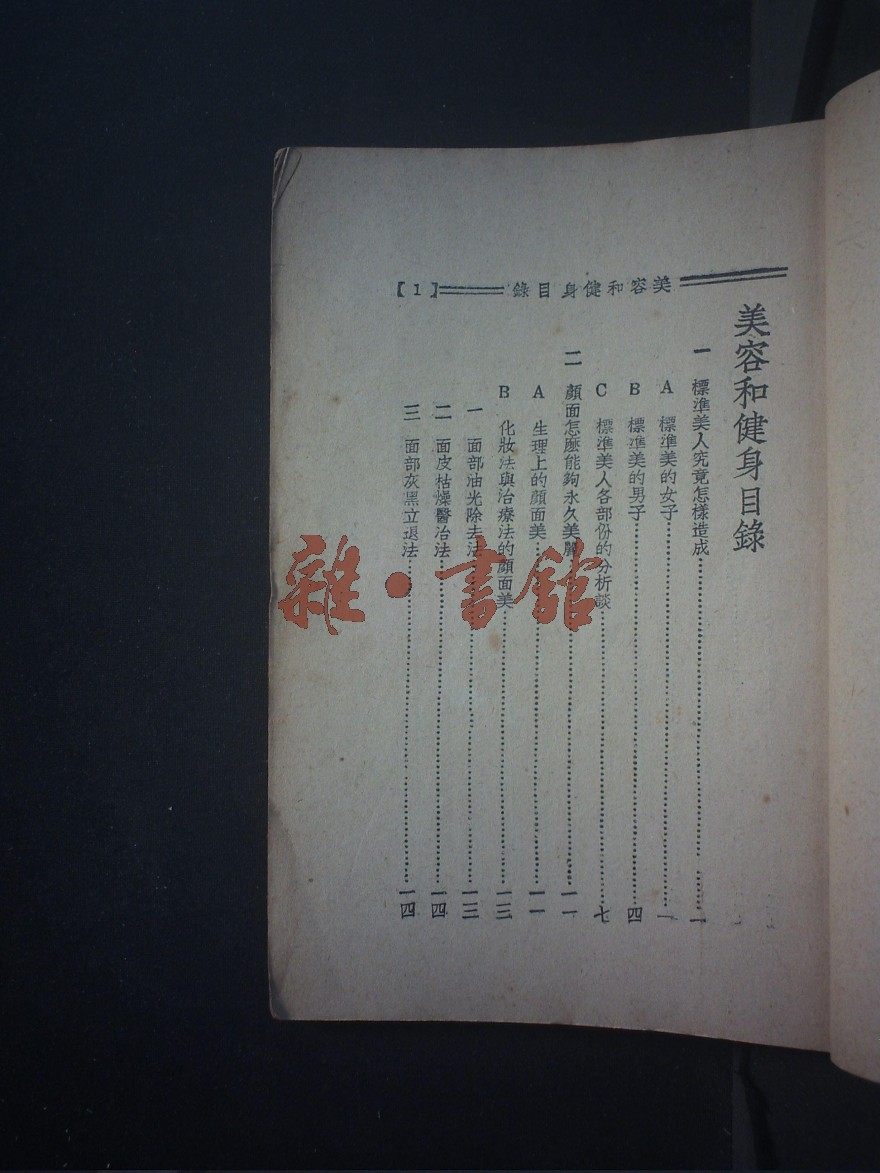 美容和健身目錄
【1】
美容和健身目錄
一 標準美人究竟怎樣造成……一
A 標準美的女子……一
B 標準美的男子……四
C 標準美人各部份的分析談……七
二 顏面怎麽能夠永久美麗……一一
A 生理上的顏面美……一一
B 化妝法與治療法的顏面美……一三
一 面部油光除去法……一三
二 面皮枯燥醫治法……一四
三 面部灰黑立退法……一四
雜·書館